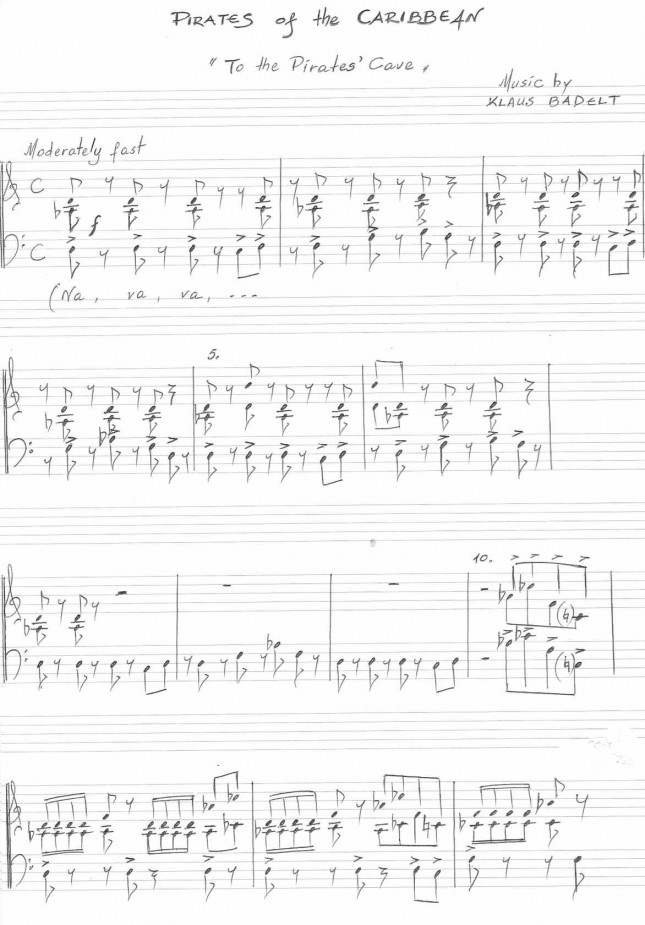 PIRATES of the CARIBBEAN
"To the Pirates' Cave"
Music by
KLAUS BADELT
Moderately fast
C
f
C
(Na, va, va, ...
5.
10.